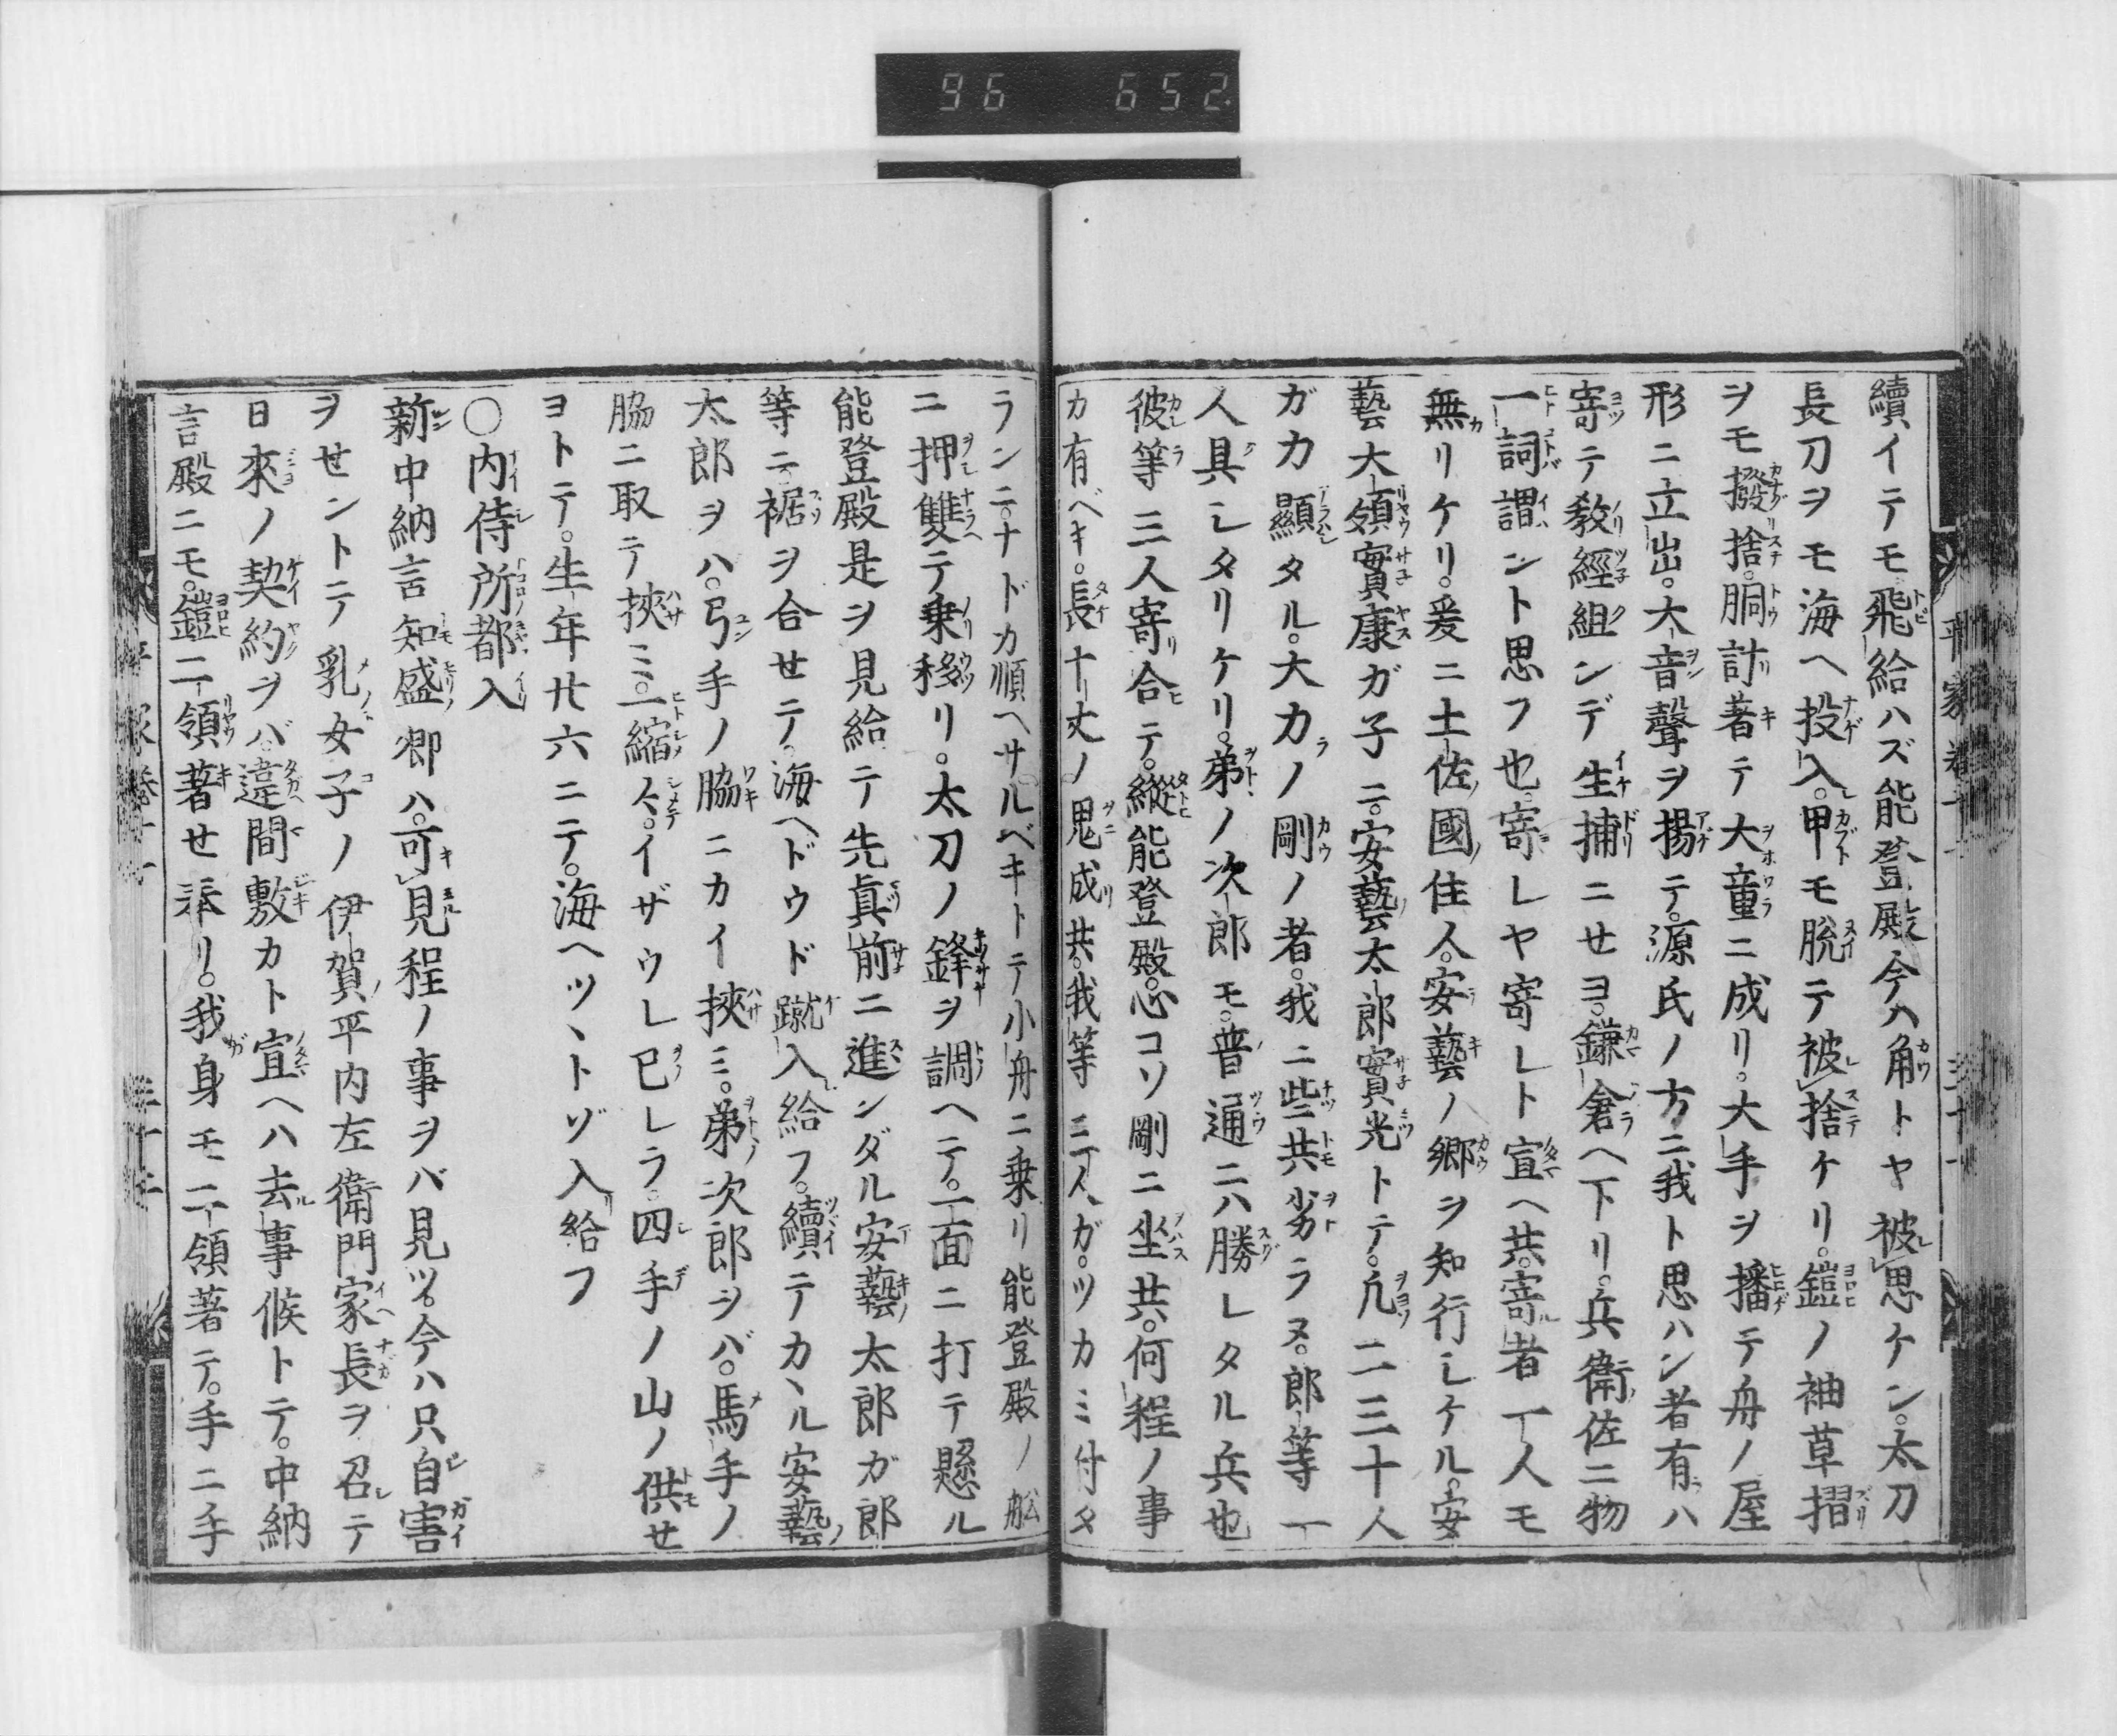 96 652
續イテモ飛給ハズ能登殿今ハ角トヤ被思ケン。太刀
長刀ヲモ海ヘ投入。甲モ脱テ被捨ケリ。鎧ノ袖草摺
ヲモ撥捨。胴計著テ大童ニ成リ。大手ヲ播テ舟ノ屋
形ニ立出。大音聲ヲ揚テ。源氏ノ方ニ我ト思ハン者有ハ
寄テ教經組ンデ生捕ニせヨ。鎌倉ヘ下リ。兵衛佐ニ物
一詞謂ント思フ也。寄レヤ寄レト宣ヘ共。寄者一人モ
無リケリ。爰ニ土佐國住人。安藝ノ郷ヲ知行シケル。安
藝大領實康ガ子ニ。安藝太郎實光トテ。凡二三十人
ガ力顯タル。大力ノ剛ノ者。我ニ些共劣ラヌ。郎等一
人具シタリケリ。弟ノ次郎モ。普通ニハ勝レタル兵也
彼等三人寄合テ。縱能登殿。心コソ剛ニ坐共。何程ノ事
カ有ベキ。長十丈ノ鬼成共。我等三人ガ。ツカミ付タ
ランニ。ナドカ順ヘサルベキトテ小舟ニ乗リ能登殿ノ舩
ニ押雙テ乗移リ。太刀ノ鋒ヲ調ヘテ。一面ニ打テ懸ル
能登殿是ヲ見給テ先眞前ニ進ンダル安藝太郎ガ郎
等ニ裾ヲ合せテ。海ヘドウド蹴入給フ。續テカヽル安藝
太郎ヲハ。弓手ノ脇ニカイ挾ミ。弟次郎ヲバ。馬手ノ
脇ニ取テ挾ミ。一縮〆。イザウレ己レラ。四手ノ山ノ供せ
ヨトテ。生年廿六ニテ。海ヘツヽトゾ入給フ
〇内侍所都入
新中納言知盛卿ハ。可見程ノ事ヲバ見ツ。今ハ只自害
ヲせントテ乳女子ノ伊賀平内左衛門家長ヲ召テ
日來ノ契約ヲバ違間敷カト宣ヘハ去事候トテ。中納
言殿ニモ。鎧二領著せ奉リ。我身モ二領著テ。手ニ手
平家卷十一